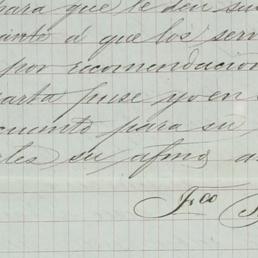 para que le den su
cuanto á que los ser
por recomendacion
carta puse yo en
cuento para su
les su afmo a
Fco S